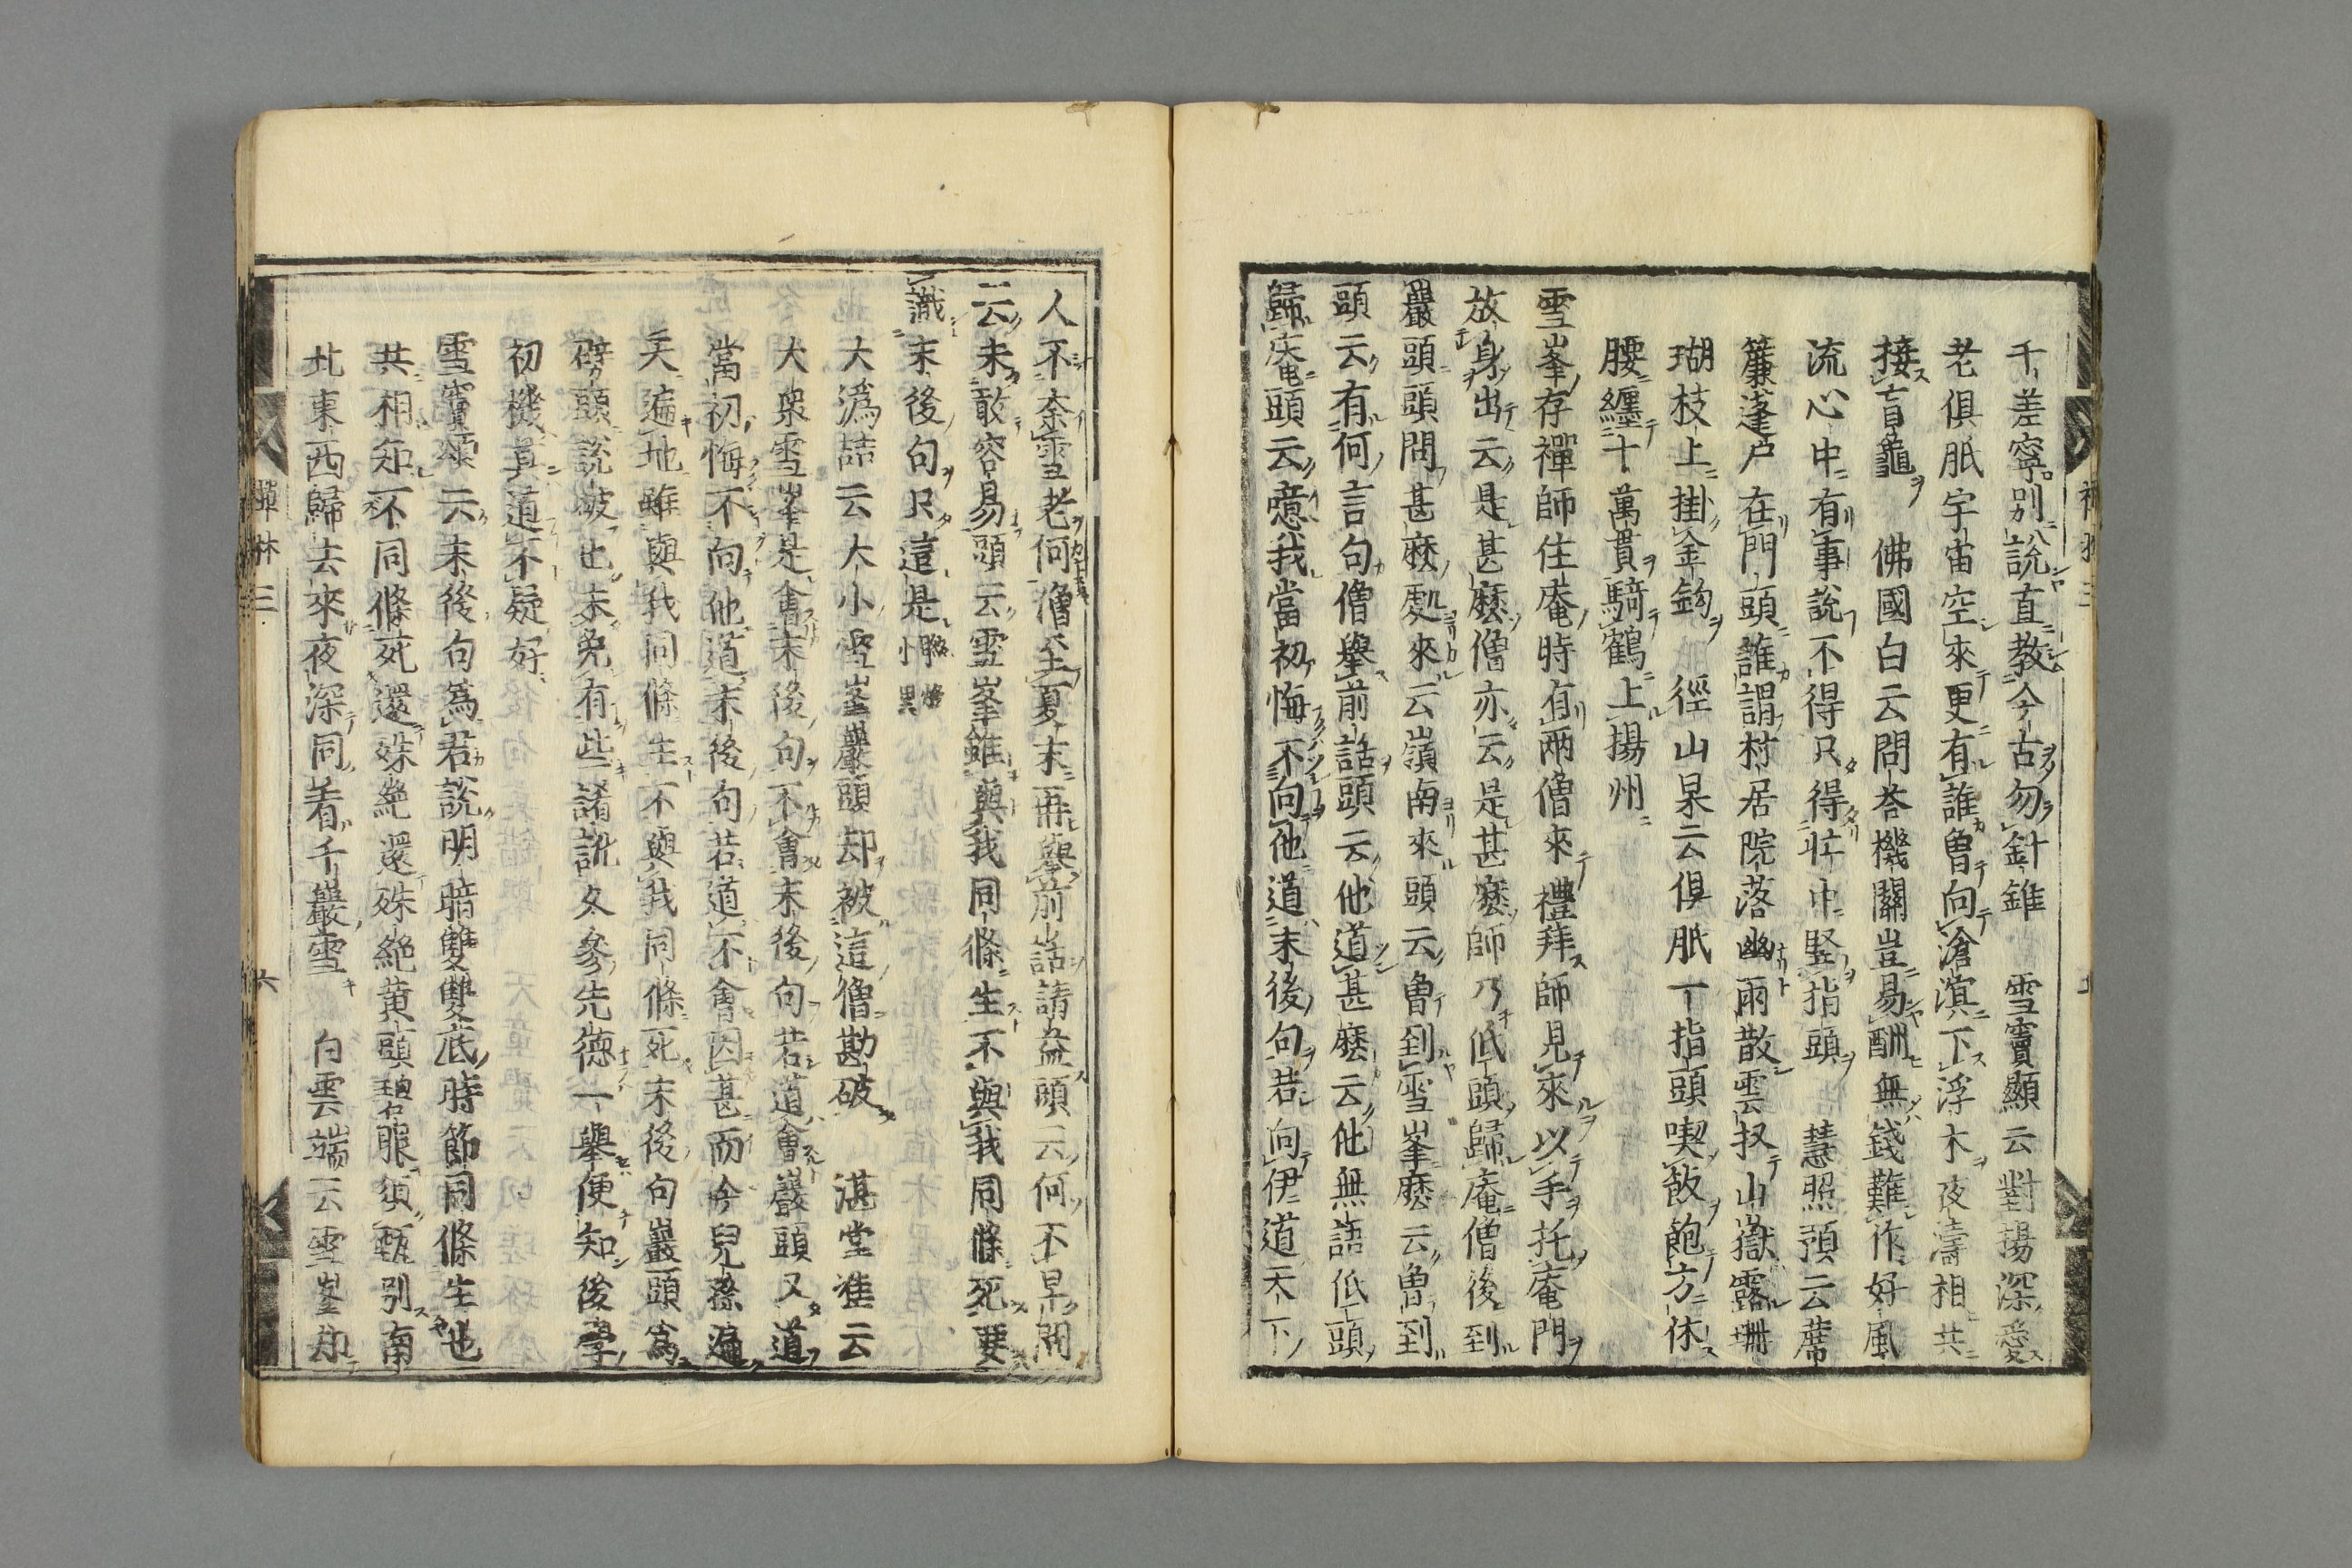 千差寧別說直教今古勿針錐　雪竇顯云對揚深愛
老俱胝宇宙空來更有誰曾向滄溟下浮木夜濤相共
接盲龜　佛國白云問荅機關豈易酬無錢難作好風
流心中有事說不得只得忙中竪指頭　慧照預云蓆
簾蓬户在門頭誰謂村居院落幽雨散雲扠山嶽露珊
瑚枝上掛金鈎　徑山杲云俱胝一指頭喫飯飽方休
腰纏十萬貫騎鶴上揚州
雪峯存禪師住庵時有兩僧來禮拜師見來以手托庵門
放身出云是甚麽僧亦云是甚麽師乃低頭歸庵僧後到
巖頭頭問甚麽處來云嶺南來頭云曾到雪峯麽云曾到
頭云有何言句僧舉前話頭云他道甚麽云他無語低頭
歸庵頭云噫我當初悔不向他道末後句若向伊道天下
人不柰雪老何僧至夏末再舉前話請益頭云何不早問
云未敢容易頭云雪峯雖與我同條生不與我同條死要
識末後句只這是
大潙喆云大小雪峯巖頭却被這僧勘破　湛堂準云
大衆雪峯是會末後句不會末後句若道會巖頭又道
當初悔不向他道末後句若道不會因甚而今兒孫遍
天遍地雖與我同條生不與我同條死末後句巖頭爲
劈頭說破也未免有些諸訛久參先德一舉便知後學
初機眞道不疑好
雪竇頌云末後句爲君說明暗雙雙底時節同條生也
共相知不同條死還殊絶還殊絶黄頭碧眼須甄别南
北東西歸去來夜深同看千巖雪　白雲端云雪峯却
禪林三
六